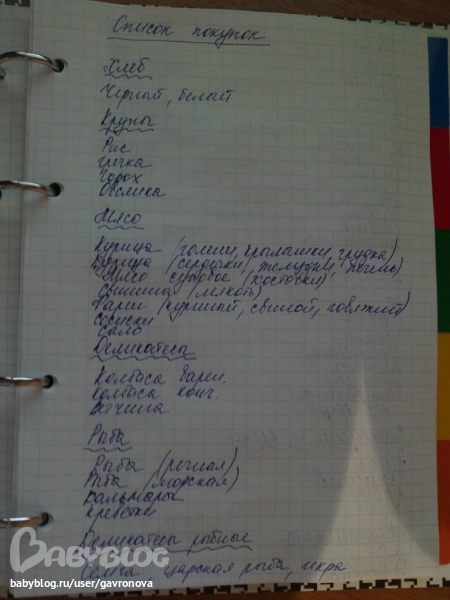 Список покупок
Хлеб
Черный, белый
Крупы
Рис
Гречка
Горох
Овсянка
Мясо
Курица (голени, крылышки, грудка)
Курица (сердечки, желудки, печень)
Мясо суповое (косточки)
Свинина (мякоть)
Фарш (куриный, свиной, говяжий)
Сосиски
Сало
Деликатесы
Колбаса варен.
Колбаса копч.
Ветчина
Рыба
Рыба (речная)
Рыба (морская)
Кальмары
Креветки
Деликатесы рыбные
Семга царская рыба, икра
BABYBLOG
babyblog.ru/user/gavronova